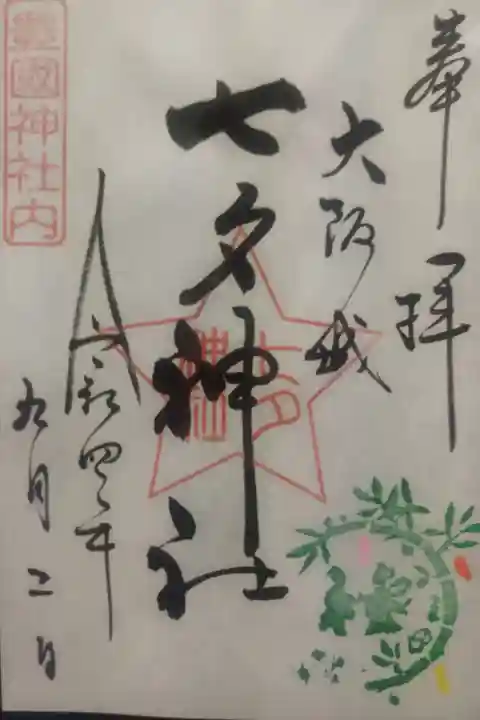 奉拝
大阪城
七夕神社
七夕神社
令和四年
九月二日
豊國神社内